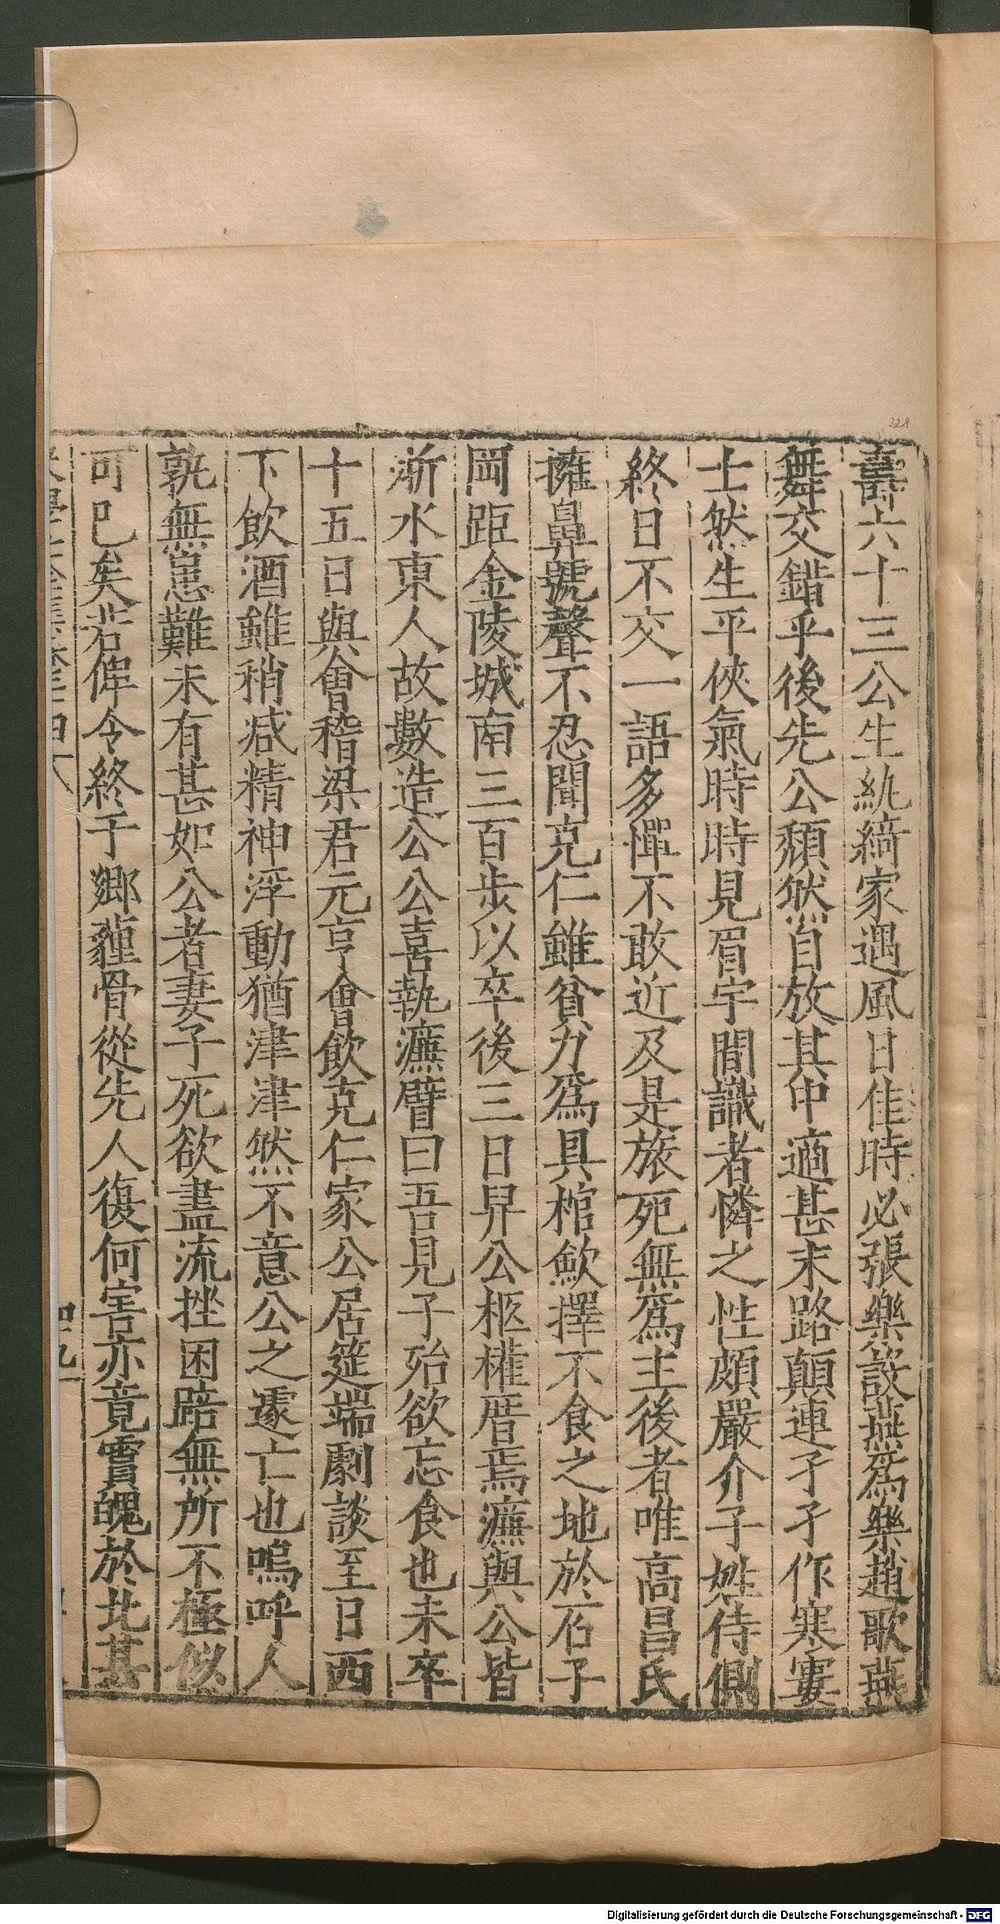 壽六十三公生紈綺家遇風日佳時必張樂設燕爲樂趙歌燕
舞交錯乎後先公頹然自放其中適甚末路顛連孑孑作寒寠
士然生平俠氣時時見眉宇間識者憐之性頗嚴介子姓侍側
終日不交一語多憚不敢近及是旅死無爲主後者唯高昌氏
擁鼻號聲不忍聞克仁雖貧力爲具棺歛擇不食之地於石子
岡距金陵城南三百步以卒後三日舁公柩權厝焉濂與公皆
浙水東人故數造公公喜執濂臂曰吾見子殆欲忘食也未卒
十五日與會稽梁君元亨會飲克仁家公居筵端劇談至日西
下飲酒雖稍减精神浮動猶津津然不意公之遽亡也嗚呼人
孰無患難未有甚如公者妻子死欲盡流挫困踣無所不極似
可已矣若俾令終于鄉薶骨從先人復何害亦竟賫魄於此甚
328
Digitalisierung gefördert durch die Deutsche Forschungsgemeinschaft - DFG